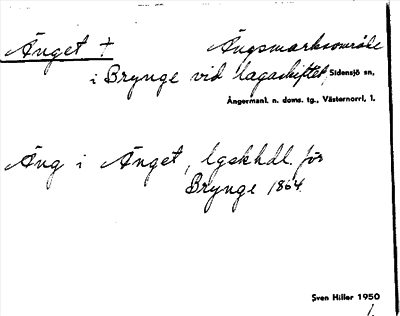 Änget + Ängsmarksområde
i Brynge vid lagaskiftet, Sidensjö sn,
Ångermanl. n. doms. tg., Västernorrl. l.
Äng i Änget, lgskhdl. för
Brynge 1864.
Sven Hiller 1950